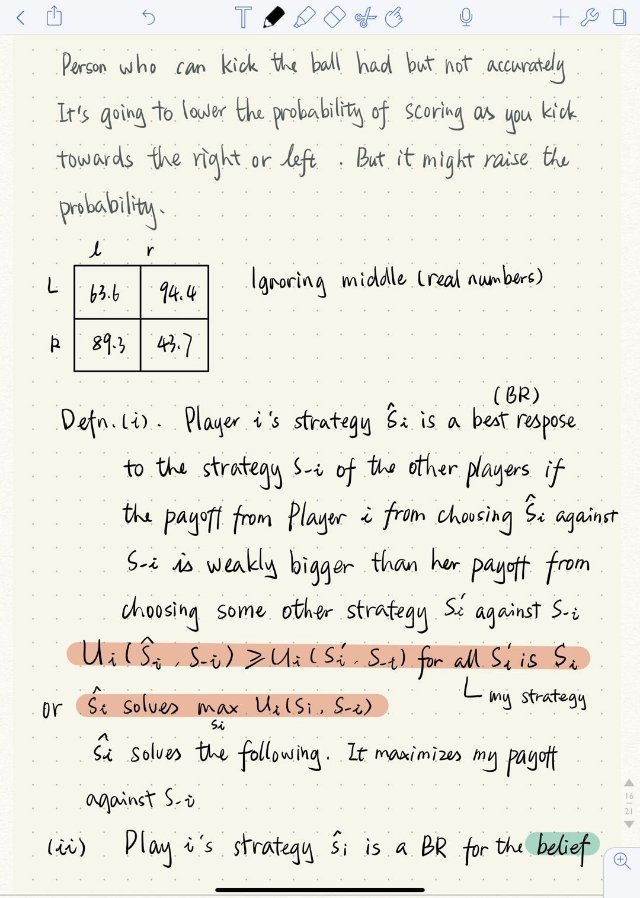 Person who can kick the ball had but not accurately
It's going to lower the probability of scoring as you kick
towards the right or left . But it might raise the
probability.
l r
L 63.6 94.4 Ignoring middle (real numbers)
R 89.3 43.7
(BR)
Defn. (i). Player i's strategy ŝi is a best respose
to the strategy s-i of the other players if
the payoff from Player i from choosing ŝi against
s-i is weakly bigger than her payoff from
choosing some other strategy si' against s-i
Ui(ŝi, s-i) ⩾ Ui(si', s-i) for all si' is Si
my strategy
or ŝi solves max Ui(si, s-i)
si
ŝi solves the following. It maximizes my payoff
against s-i
(ii) Play i's strategy ŝi is a BR for the belief
16
21